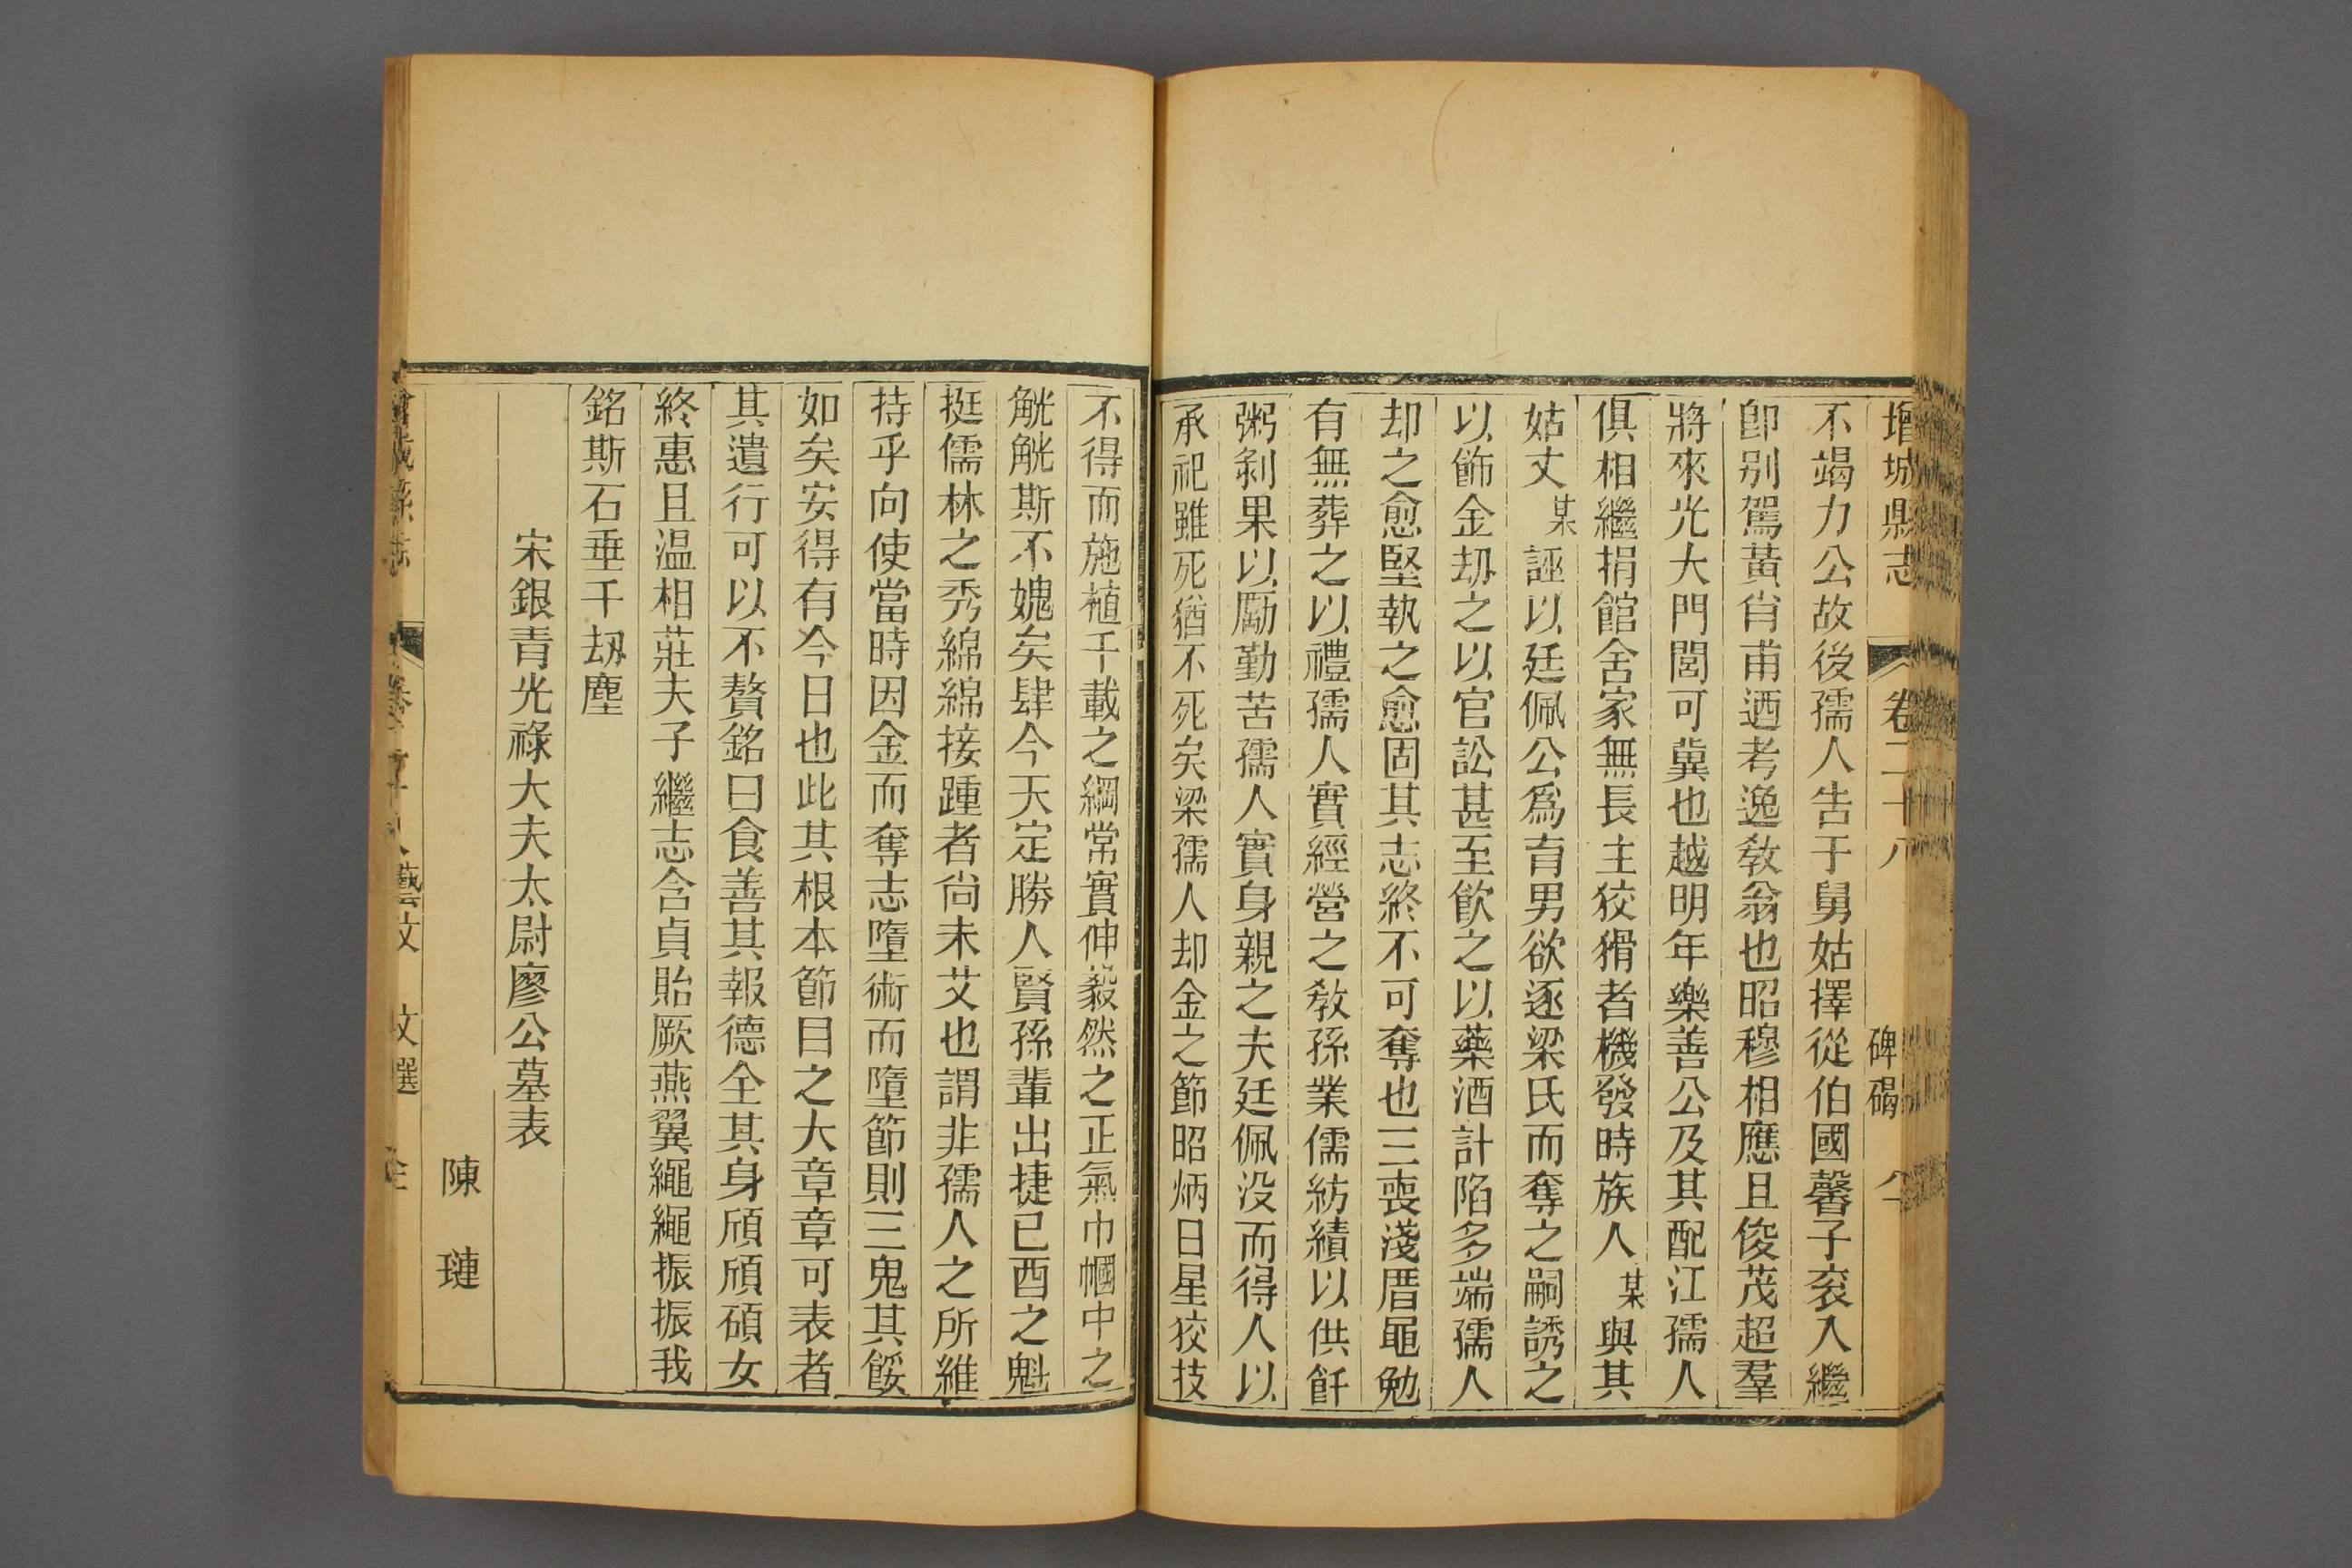 增城縣志 卷二十八 碑碣 八
不竭力公故後孺人告于舅姑擇從伯國馨子衮入繼
卽别駕黃肖甫迺考逸敎翁也昭穆相應且俊茂超羣
將來光大門閭可冀也越明年樂善公及其配江孺人
俱相繼捐館舍家無長主狡猾者機發時族人某與其
姑丈某誣以廷佩公爲育男欲逐梁氏而奪之嗣誘之
以飾金刼之以官訟甚至飮之以藥酒計陷多端孺人
却之愈堅執之愈固其志終不可奪也三喪淺厝黽勉
有無葬之以禮孺人實經營之敎孫業儒紡績以供飦
粥剝果以勵勤苦孺人實身親之夫廷佩没而得人以
承祀雖死猶不死矣梁孺人却金之節昭炳日星狡技
不得而施植千載之綱常實伸毅然之正氣巾幗中之
觥觥斯不媿矣肆今天定勝人賢孫輩出捷已酉之魁
挺儒林之秀綿綿接踵者尙未艾也謂非孺人之所維
持乎向使當時因金而奪志墮術而墮節則三鬼其餒
如矣安得有今日也此其根本節目之大章章可表者
其遺行可以不贅銘曰食善其報德全其身頎頎碩女
終惠且温相莊夫子繼志含貞貽厥燕翼繩繩振振我
銘斯石垂千刼塵
宋銀青光祿大夫太尉廖公墓表
陳璉